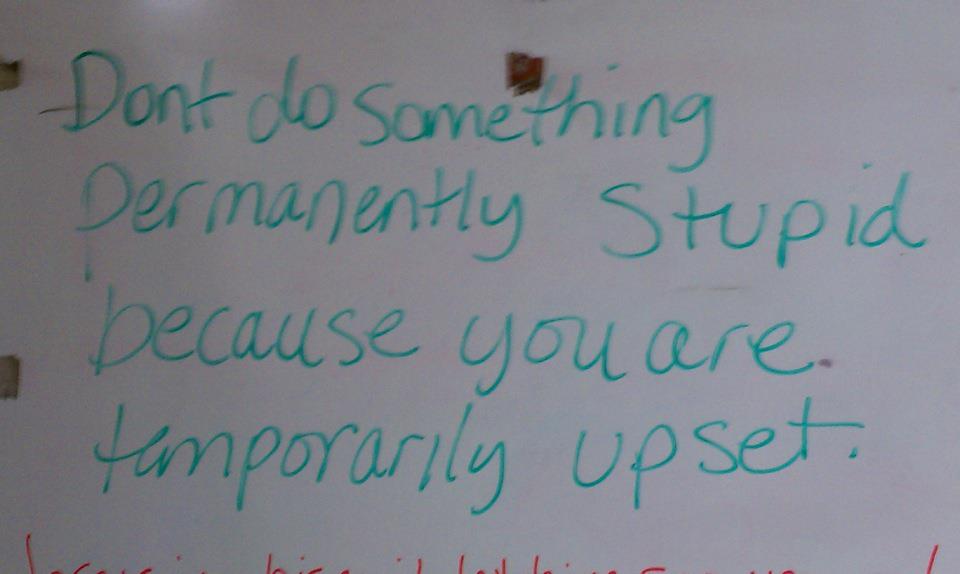 Dont do something
permanently Stupid
because you are
temporarily upset.